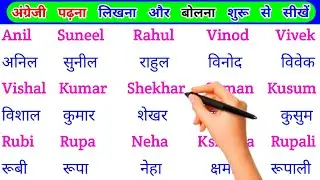 अंग्रेजी पढ़ना लिखना और बोलना शुरू से सीखें
Anil Suneel Rahul Vinod Vivek
अनिल सुनील राहुल विनोद विवेक
Vishal Kumar Shekhar Kusum
विशाल कुमार शेखर कुसुम
Rubi Rupa Neha Rupali
रूबी रूपा नेहा रूपाली